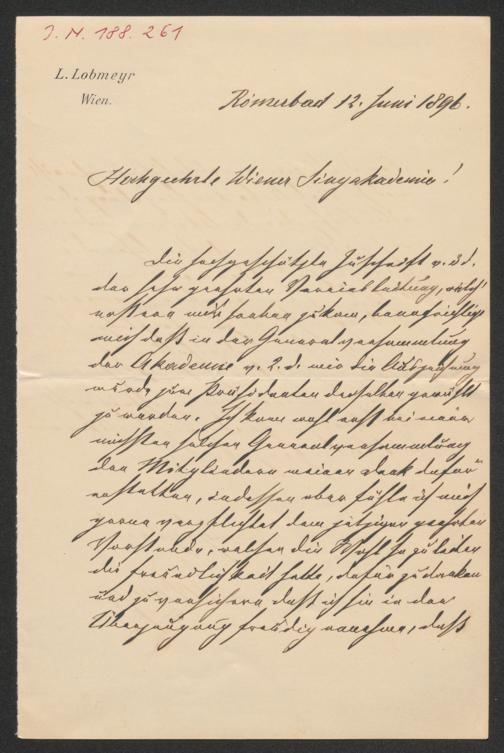 J. N. 188.261
L. Lobmeyr
Wien.
Römerbad 12. Juni 1896.
Hochgeehrte Wiener Singakademie!
Die hochgeschätzte Zuschrift v. 3 d.
der sehr geehrten Vereinsleitung, welche
gestern mir hierher zukam, benachrichtigt
mich daß in der Generalversammlung
der Akademie v. 2. d. mir die Auszeichnung
wurde zum Präsidenten derselben gewählt
zu werden. Ich kann wohl erst bei einer
nächsten solchen Generalversammlung
den Mitgliedern meinen Dank dafür
erstatten, indessen aber fühle ich mich
gerne verpflichtet dem jetzigen geehrten
Vorstande, welcher die Wahl so zu leiten
die Freundlichkeit hatte, dafür zu danken
und zu versichern daß ich sie in der
Überzeugung freudig annehme, daß